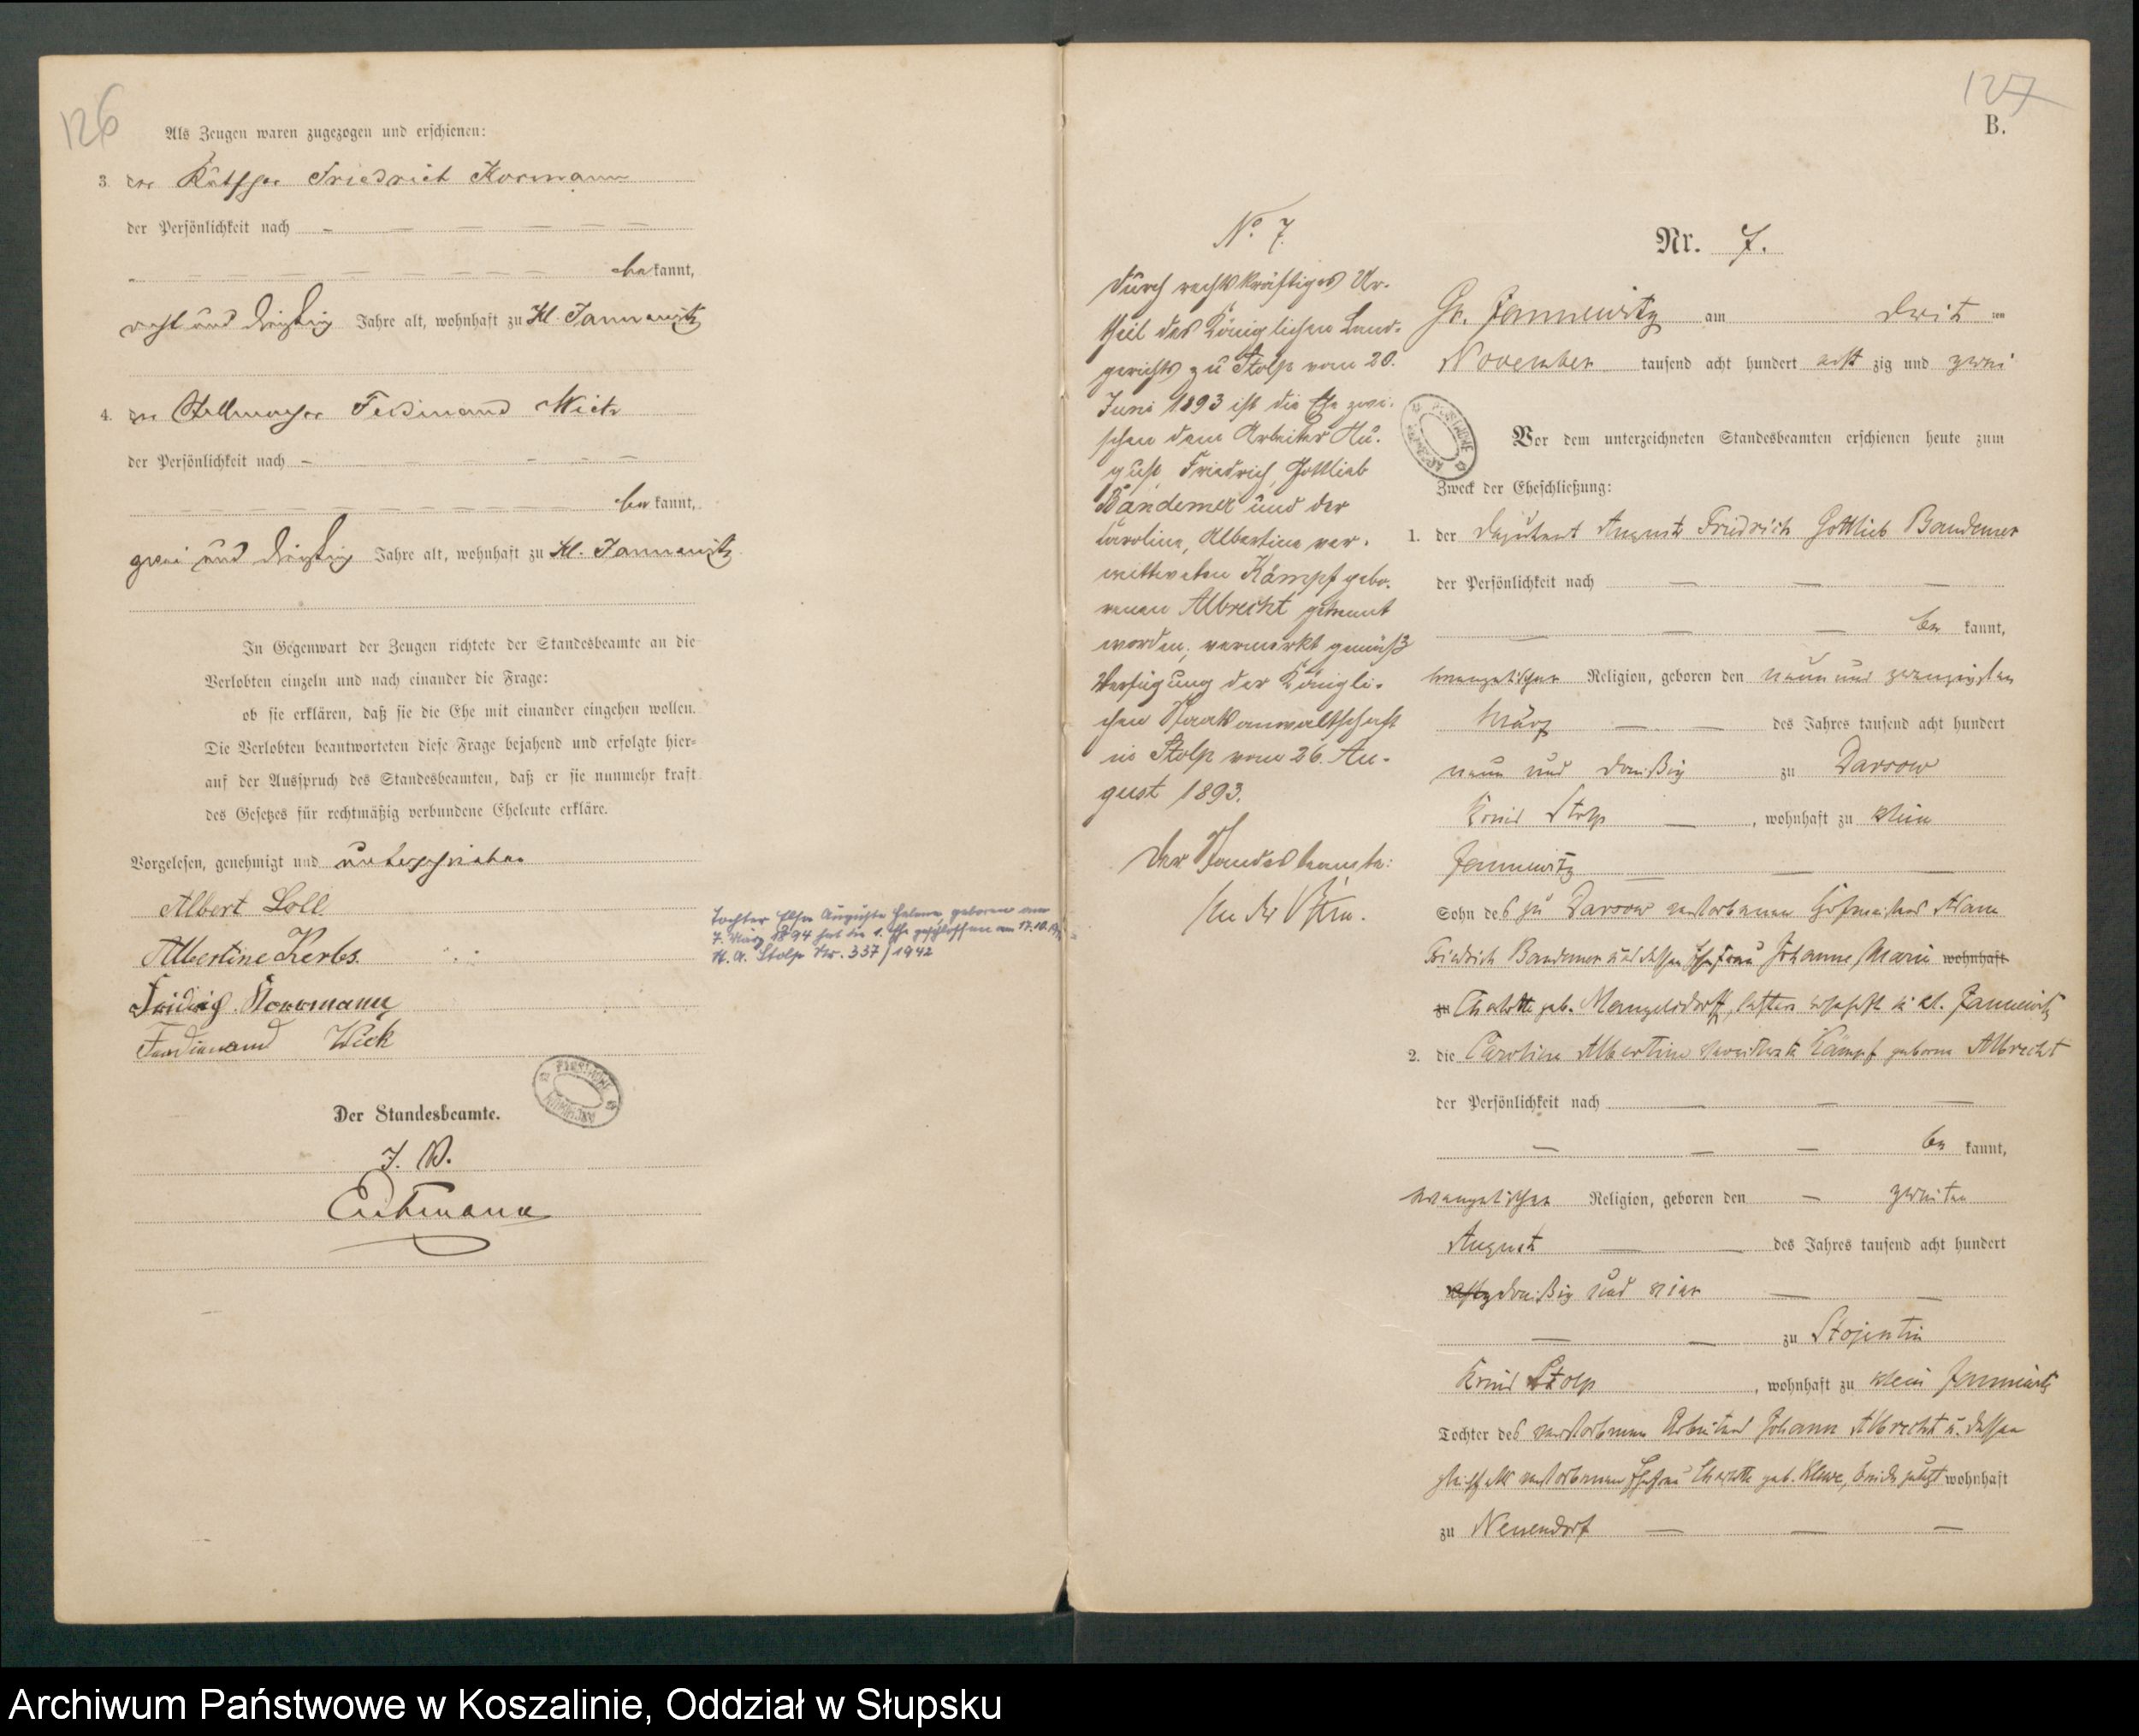 126
Als Zeugen waren zugezogen und erschienen:
3. der Käthner Friedrich Kormann
der Persönlichkeit nach
bekannt,
acht und dreißig Jahre alt, wohnhaft zu Kl. Jannewitz
4. der Stellmacher Ferdinand Wick
der Persönlichkeit nach
bekannt,
zwei und dreißig Jahre alt, wohnhaft zu Kl. Jannewitz
In Gegenwart der Zeugen richtete der Standesbeamte an die
Verlobten einzeln und nach einander die Frage:
ob sie erklären, daß sie die Ehe mit einander eingehen wollen.
Die Verlobten beantworteten diese Frage bejahend und erfolgte hier-
auf der Ausspruch des Standesbeamten, daß er sie nunmehr kraft
des Gesetzes für rechtmäßig verbundene Eheleute erkläre.
Vorgelesen, genehmigt und unterschrieben
Albert Loll
Albertine Kerbs
Friedrich Kormann
Ferdinand Wick
Der Standesbeamte.
J. V.
Tochter Elsa Auguste Helene, geboren am
7. März 1894 hat die 1. Ehe geschlossen am 17.10.
St. A. Stolp Nr. 337/1942
127
B.
No. 7.
Durch rechtskräftiges Ur-
theil des Königlichen Land-
gerichts zu Stolp vom 20.
Juni 1893 ist die Ehe zwi-
schen dem Arbeiter Au-
gust, Friedrich, Gottlieb
Bandemer und der
Caroline, Albertine ver-
wittweten Kämpf gebo-
renen Albrecht getrennt
worden, vermerkt gemäß
Verfügung der Königli-
chen Staatsanwaltschaft
in Stolp vom 26. Au-
gust 1893.
Der Standesbeamte:
Nr. 7.
Gr. Jannewitz am dritten
November tausend acht hundert achtzig und zwei
Vor dem unterzeichneten Standesbeamten erschienen heute zum
Zweck der Eheschließung:
1. der Deputant August Friedrich Gottlieb Bandemer
der Persönlichkeit nach
bekannt,
evangelischer Religion, geboren den neun und zwanzigsten
März des Jahres tausend acht hundert
neun und dreißig zu Darsow
Kreis Stolp, wohnhaft zu klein
Jannewitz
Sohn des zu Darsow verstorbenen Hofmeisters Adam
Friedrich Bandemer und dessen Ehefrau Johanne Marie wohnhaft
zu Charlotte geb. Mangelsdorff, letztere wohnhaft in kl. Jannewitz
2. die Caroline Albertine verwittwete Kämpf geborne Albrecht
der Persönlichkeit nach
bekannt,
evangelischer Religion, geboren den zweiten
August des Jahres tausend acht hundert
achtzig dreißig und vier
zu Stojentin
Kreis Stolp, wohnhaft zu klein Jannewitz
Tochter des verstorbenen Arbeiters Johann Albrecht u. dessen
gleichfalls verstorbenen Ehefrau Charlotte geb. Klewe, beide zuletzt wohnhaft
zu Neuendorf
Archiwum Państwowe w Koszalinie, Oddział w Słupsku